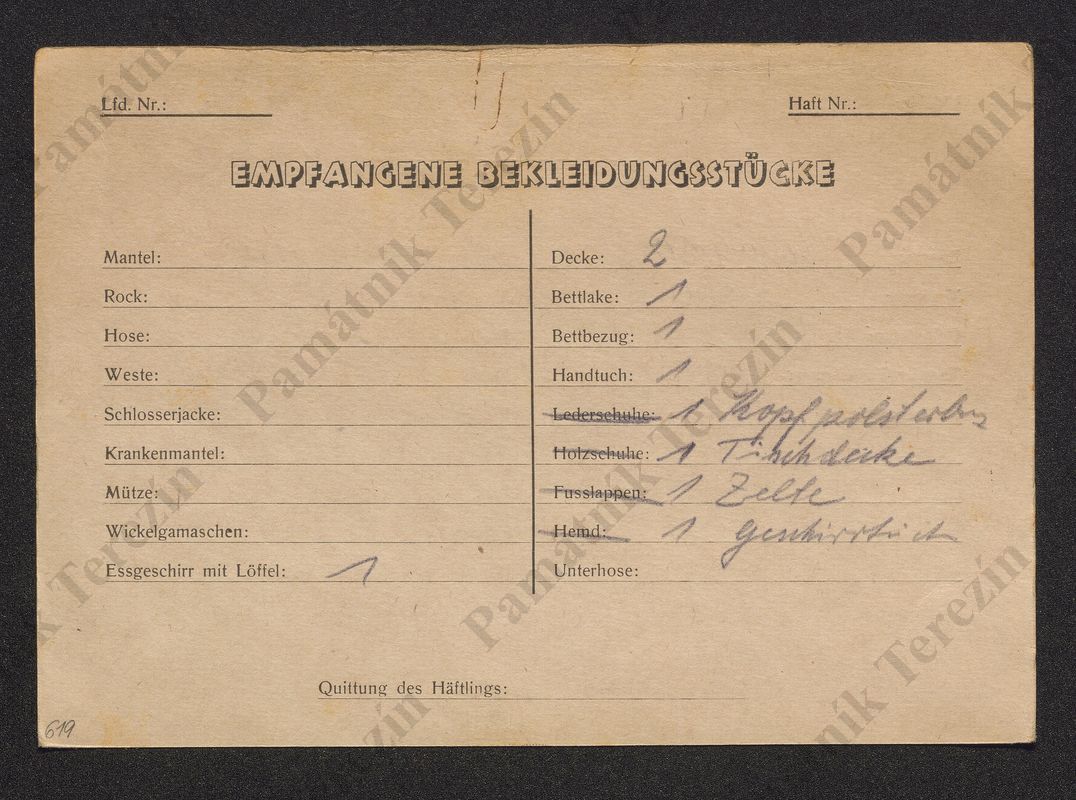 Lfd. Nr.:
Haft Nr.:
EMPFANGENE BEKLEIDUNGSSTÜCKE
Mantel:
Rock:
Hose:
Weste:
Schlosserjacke:
Krankenmantel:
Mütze:
Wickelgamaschen:
Essgeschirr mit Löffel: 1
Decke: 2
Bettlake: 1
Bettbezug: 1
Handtuch: 1
Lederschuhe: 1
Holzschuhe: 1 Tischdecke
Fusslappen: 1 Zelte
Hemd: 1 Geschirrtuch
Unterhose:
Quittung des Häftlings:
619
Památník Terezín